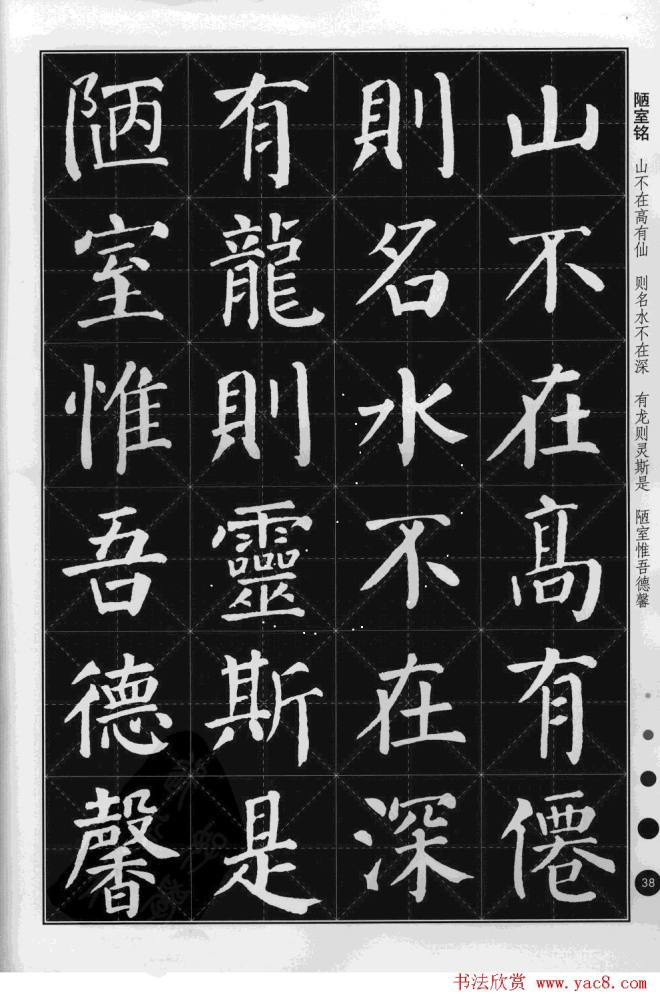 陋室铭 山不在高有仙 则名水不在深 有龙则灵斯是 陋室惟吾德馨
山不在高有僊
則名水不在深
有龍則靈斯是
陋室惟吾德馨
38
书法欣赏 www.yac8.com